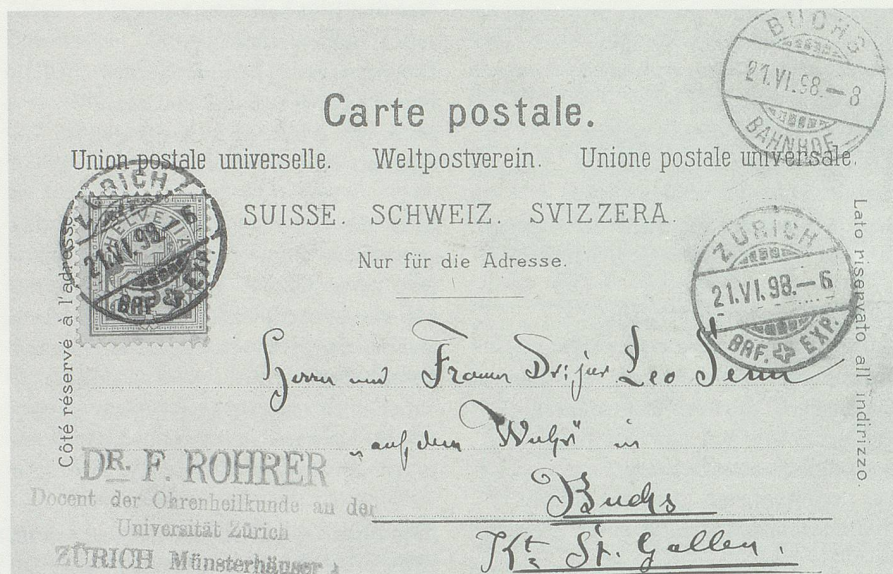 BUCHS
21.VI.98.—8
BAHNHOF
Carte postale.
Union postale universelle. Weltpostverein. Unione postale universale.
ZÜRICH
21.VI.98.—6
BRF. EXP.
HELVETIA
SUISSE. SCHWEIZ. SVIZZERA.
Nur für die Adresse.
ZÜRICH
21.VI.98.—6
BRF. EXP.
Côté réservé à l'adresse.
Lato riservato all' indirizzo.
Herrn und Frauen Dr: jur Leo Senn
„auf dem Wuhr" in
Buchs
Kt. St. Gallen.
DR. F. ROHRER
Docent der Ohrenheilkunde an der
Universität Zürich
ZÜRICH Münsterhäuser